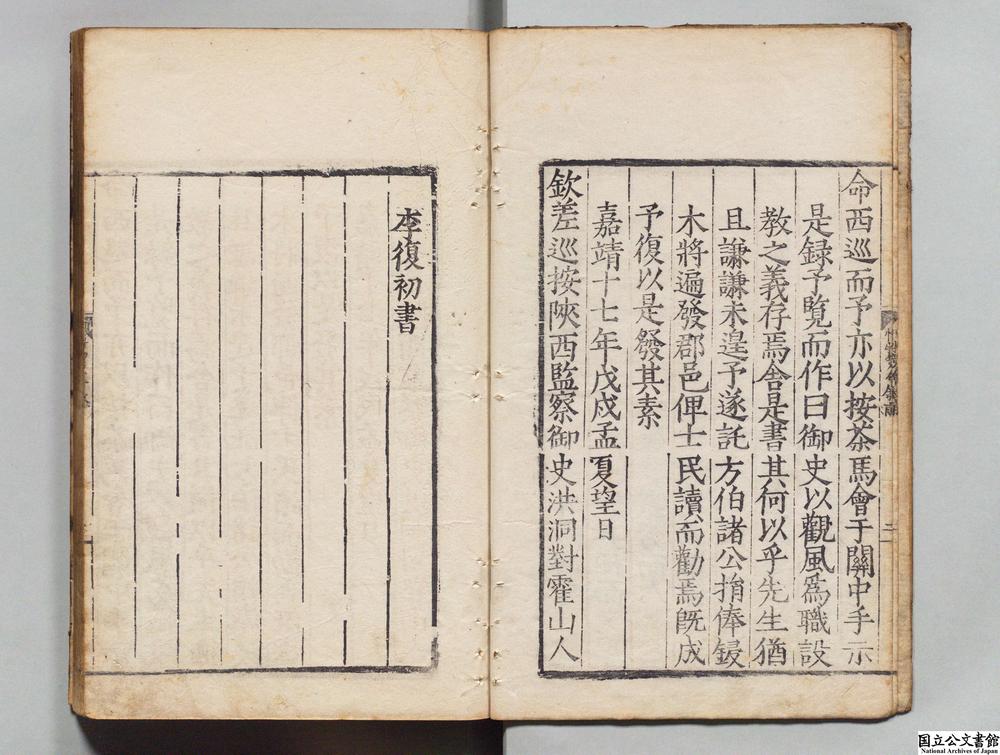 命西巡而予亦以按茶馬會于關中手示
是録予覧而作曰御史以觀風爲職設
教之義存焉舍是書其何以乎先生猶
且謙謙未遑予遂託方伯諸公捐俸鋟
木將遍發郡邑俾士民讀而勸焉旣成
予復以是發其素
嘉靖十七年戊戌孟夏望日
欽差巡按陝西監察御史洪洞對霍山人
李復初書
国立公文書館
National Archives of Japan